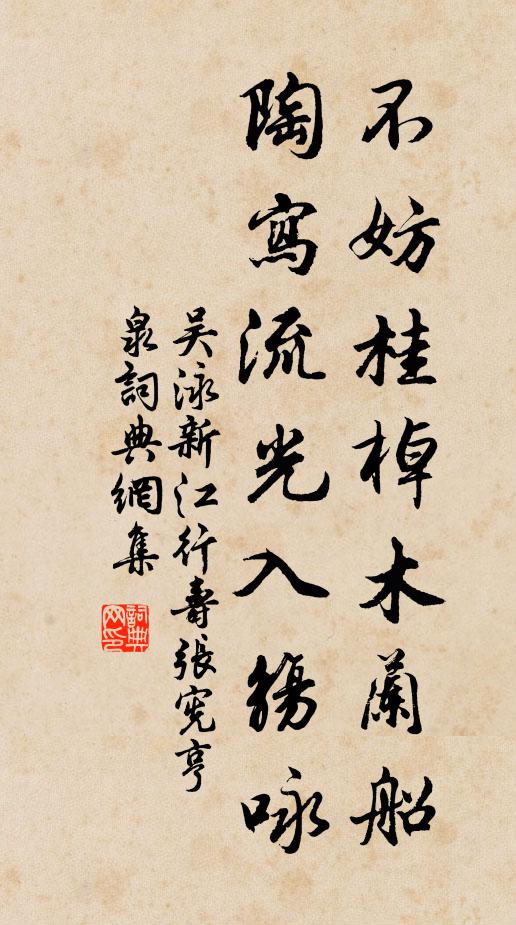 不妨桂棹木蘭船
陶寫流光入觴咏
吴泳新江行壽張宪亨
泉詞典網集
詞典
网印